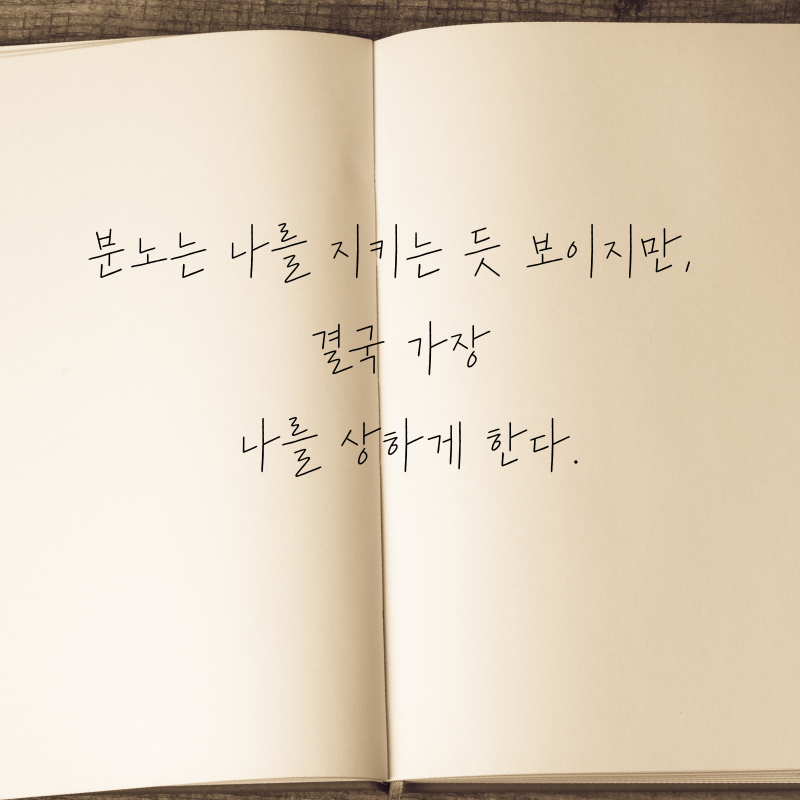 분노는 나를 지키는 듯 보이지만,
결국 가장
나를 상하게 한다.